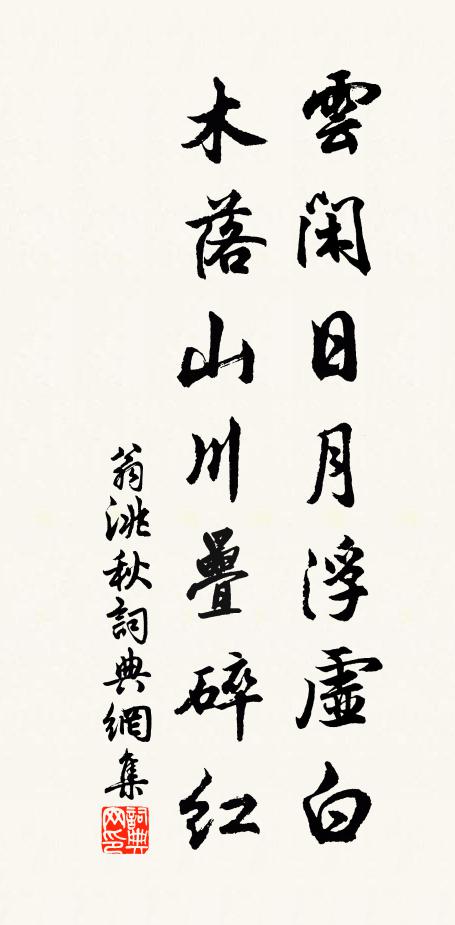 雲閑日月浮虛白
木落山川疊碎紅
翁洮秋詞典網集
詞典网印